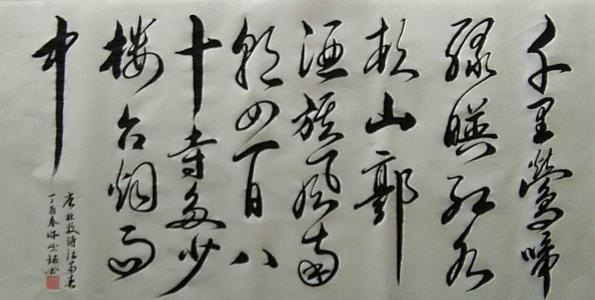 千里鶯啼
绿暎红水
村山郭
酒旗风南
朝四百八
十寺多少
楼台烟雨
中
唐杜牧诗江南春
丁酉春书